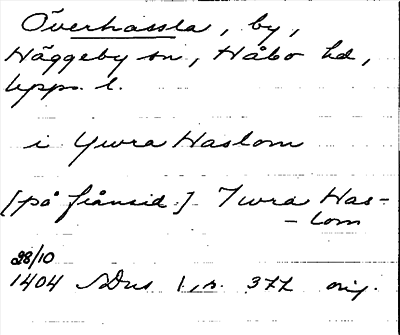 Överhassla, by,
Häggeby sn, Håbo hd,
Upps. l.
i Ywra Haslom
[på frånsid.] Iwra Has-
-lom
28/10
1404 SDns 1, s. 377 orig.